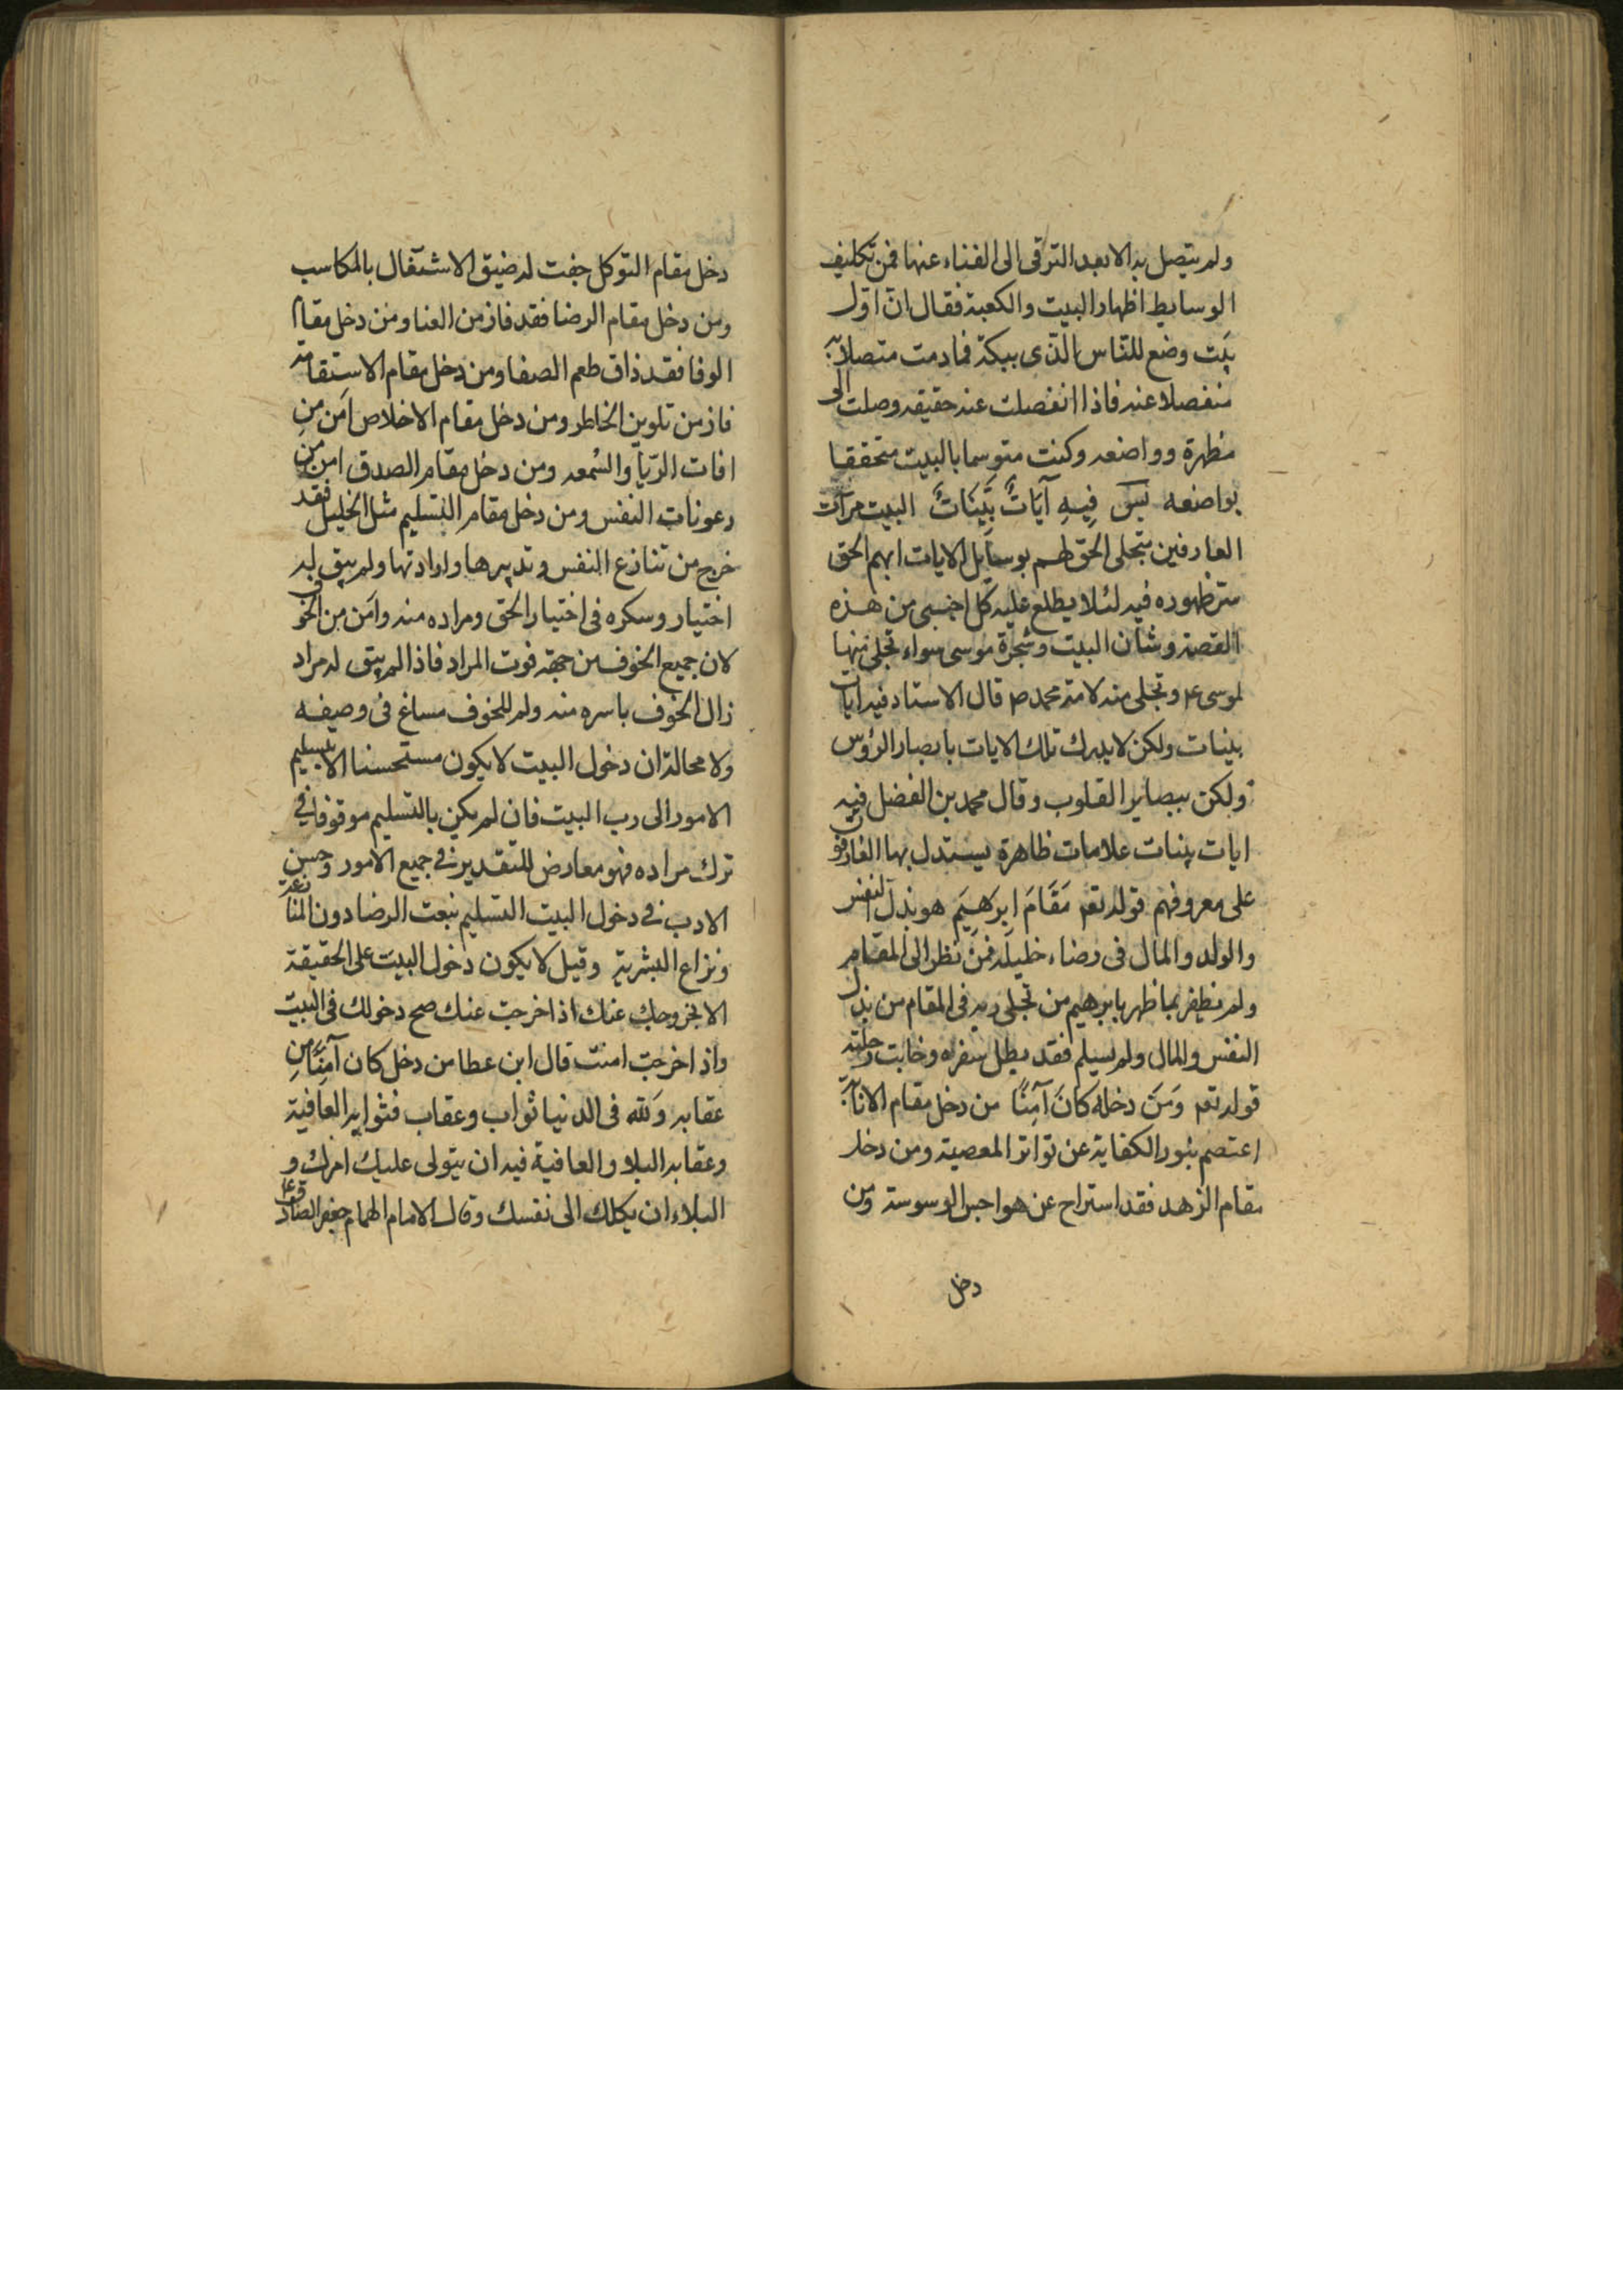 ولم يتصل به الا بعد الترقى الى الفناء عنها فمن تكليف
الوسايط اظهار البيت والكعبة فقال ان اول
بيت وضع للناس للذى ببكة فمادمت متصلا به
منفصلا عنه فاذا انفصلت عنه حقيقه وصلت الى
مظهرة وواضعه وكنت متوسما بالبيت متحققا
بواضعه فِيهِ آيَاتٌ بَيِّنَاتٌ البيت مرآت
العارفين يتجلى الحق لهم بوسايل الايات ابهم الحق
سر ظهوره فيه لئلا يطلع عليه كل اجنبى من هذه
القصة وشان البيت وشجرة موسى سواء تجلى منها
لموسى ع وتجلى منه لامة محمد ص قال الاستاد فيه ايات
بينات ولكن لا يدرك تلك الايات بابصار الرؤس
ولكن ببصاير القلوب وقال محمد بن الفضل فيه
ايات بينات علامات ظاهرة يستدل بها العارفون
على معروفهم قوله تعم مَقَامَ ابرهيم هو بذل النفس
والولد والمال فى رضاء خليله فمن نظر الى المقام
ولم نظفر بما ظهر بابرهيم من تجلى ربه فى المقام من بذل
النفس والمال ولم يسلم فقد بطل سفره وخابت رحلته
قوله تعم وَمَنَ دخله كانَ آمِنًا من دخل مقام الانابة
اعتصم بنور الكفاية عن تواتر المعصية ومن دخل
مقام الزهد فقد استراح عن هواجس الوسوسة ومن
دخل
دخل مقام التوكل جفت له ضيق الاشتغال بالمكاسب
ومن دخل مقام الرضا فقد فاز من العنا ومن دخل مقام
الوفا فقد ذاق طعم الصفا ومن دخل مقام الاستقامة
فاز من تلوين الخاطر ومن دخل مقام الاخلاص آمن من
افات الريا والسمعه ومن دخل مقام الصدق امن من
رعونات النفس ومن دخل مقام التسليم مثل الخليل فقد
خرج من تنازع النفس وتدبيرها وارادتها ولم يبق له
اختيار وسكره فى اختيار الحق ومراده منه وآمن من الخوف
لان جميع الخوف من جهة فوت المراد فاذا لم يبق له مراد
زال الخوف باسره منه ولم للخوف مساغ فى وصيفه
ولا محالة ان دخول البيت لا يكون مستحسنا الا بتسليم
الامور الى رب البيت فان لم يكن بالتسليم موقوفا فى
ترك مراده فهو معارض للتقدير فى جميع الامور وحسن
الادب فى دخول البيت التسليم بنعت الرضا دون المنازعة
ونزاع البشرية وقيل لا يكون دخول البيت على الحقيقة
الا بخروجك عنك اذا خرجت عنك صح دخولك فى البيت
واذا خرجت امنت قال ابن عطا من دخل كان آمِنًا من
عقابه ولله فى الدنيا ثواب وعقاب فثوابه العافية
وعقابه البلا والعافية فيه ان يتولى عليك امرك و
البلاء ان يكلك الى نفسك وقال الامام الهمام جعفر الصادق ع